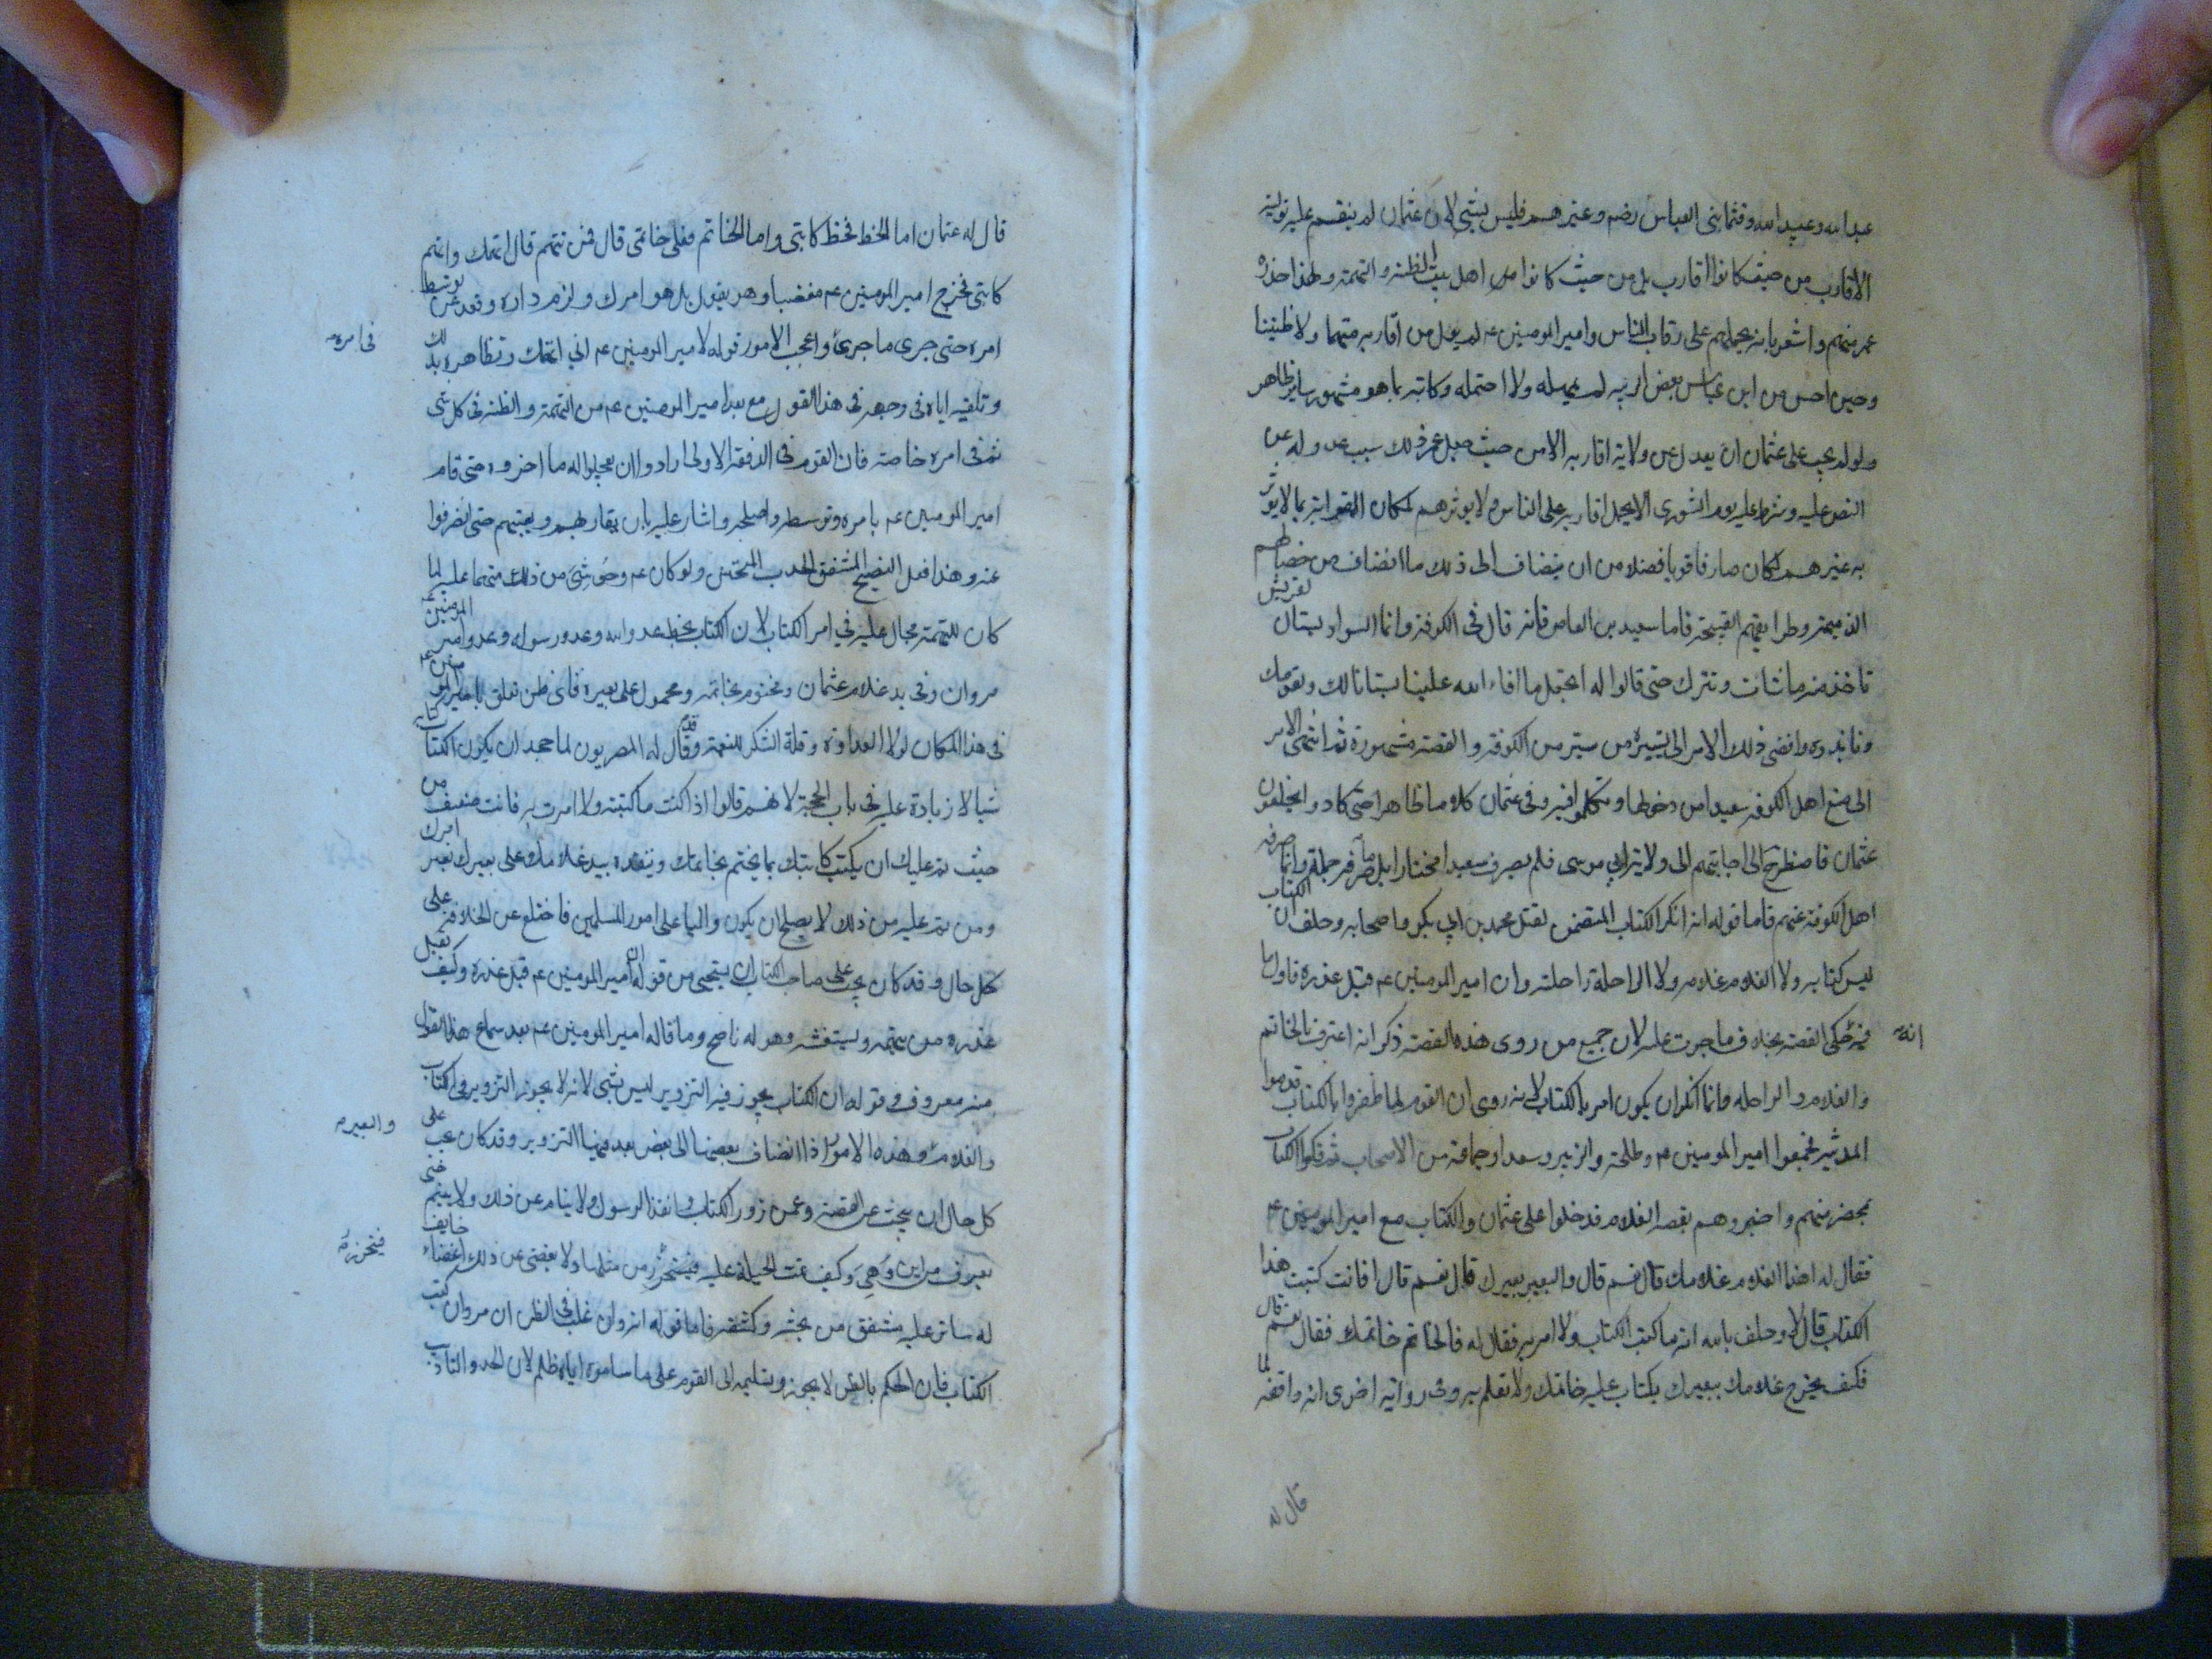 عبد الله وعبيد الله وقثما بنى العباس رضه وغيرهم فليس بشي لان عثمان لم ينقم عليه تولية
الاقارب من حيث كانوا اقارب بل من حيث كانوا من اهل بيت الظنة والتهمة ولهذا حذره
عمر منهم واشعر بانه يحملهم على رقاب الناس وامير المومنين عم لم يول من اقاربه متهما ولا ظنينا
وحين احس من ابن عباس بعض الريبه لم يمهله ولا احتمله وكاتبه بما هو مشهور ساير ظاهر
ولو لم يجب على عثمان ان يعدل عن ولاية اقاربه الا من حيث جعل عمر ذلك سبب عدوله عن
النص عليه وشرط عليه يوم الشورى الا يحمل اقاربه على الناس ولا يوثرهم لمكان القرابة بما لا يوثر
به غيرهم لكان صارفا قويا فضلا من ان ينضاف الى ذلك ما انضاف من خصالهم
الذميمة وطرايقهم القبيحة فاما سعيد بن العاص فانه قال فى الكوفة وانما السواد بستان لقريش
تاخذ منه ما شات وتترك حتى قالوا له اتجعل ما افاء الله علينا بستانا لك ولقومك
ونابذوه وافضى ذلك الامر الى تسييره من سير من الكوفة والقصة مشهورة ثم انتهى الامر
الى منع اهل الكوفه سعيدا من دخولها وتكلموا فيه وفى عثمان كلاما ظاهرا حتى كادوا يخلعون
عثمان فاضطر الى اجابتهم الى ولاية ابي موسى فلم يصرف سعيدا مختارا بل ما صرفه جملة وانما صرفه
اهل الكوفة عنهم فاما قوله انه انكر الكتاب المتضمن لقتل محمد بن ابي بكر واصحابه وحلف ان الكتاب
ليس كتابه ولا الغلام غلامه ولا الراحلة راحلته وان امير المومنين عم قبل عذره فاول ما
فيه انه حكى القصة بخلاف ما جرت عليه لان جميع من روى هذه القصة ذكر انه اعترف بالخاتم
والغلام والراحله وانما انكر ان يكون امر بالكتاب لانه روى ان القوم لما ظفروا بالكتاب قدموا
المدينة فجمعوا امير المومنين عم وطلحة والزبير وسعدا وجماعة من الاصحاب ثم فكوا الكتاب
بمحضر منهم واخبروهم بقصه الغلام فدخلوا على عثمان والكتاب مع امير المومنين عم
فقال له اهذا الغلام غلامك قال نعم قال والبعير بعيرك قال نعم قال افانت كتبت هذا
الكتاب قال لا وحلف بالله انه ما كتب الكتاب ولا امر به فقال له فالخاتم خاتمك فقال نعم قال
فكيف يخرج غلامك ببعيرك بكتاب عليه خاتمك ولا تعلم به وفى رواية اخرى انه لما واقفه
قال له
قال له عثمان اما الخط فخط كاتبى واما الخاتم فعلى خاتمى قال فمن تتهم قال اتهمك واتهم
كاتبى فخرج امير المومنين عم مغضبا وهو يقول بل هو امرك ولزم داره وقعد عن توسط
امره حتى جرى ما جرى فى امره واعجب الامور قوله لامير المومنين عم انى اتهمك وتظاهره بذلك
وتلقيه اياه فى وجهه فى هذا القول مع بعد امير المومنين عم من التهمة والظنة فى كل شي
ثم فى امره خاصة فان القوم فى الدفعة الاولى ارادوا ان يعجلوا له ما اخروه حتى قام
امير المومنين عم بامره وتوسطه واصلحه واشار عليه بان يقاربهم ويعتبهم حتى انصرفوا
عنه وهذا فعل النصيح المشفق الحدب المتحنن ولو كان عم وحوشى من ذلك متهما عليه لما
كان للتهمة مجال عليه في امر الكتاب لان الكتاب بخط عدو الله وعدو رسوله وعدو امير المومنين عم
مروان وفى يد غلام عثمان ومختوم بخاتمه ومحمول على بعيره فاى ظن تعلق بامير المومنين عم
فى هذا المكان لولا العداوة وقلة الشكر للنعمة وقد قال له المصريون لما جحد ان يكون الكتاب كتابه
شيا لا زيادة عليه فى باب الحجة لانهم قالوا اذا كنت ما كتبته ولا امرت به فانت ضعيف من
حيث تم عليك ان يكتب كاتبك بما يختم بخاتمك وينفذه بيد غلامك على بعيرك بغير امرك
ومن تم عليه من ذلك لا يصلح ان يكون واليا على امور المسلمين فاختلع عن الخلافة على
كل حال وقد كان يجب على صاحب الكتاب ان يستحيى من قوله ان امير المومنين عم قبل عذره وكيف يقبل
عذره من يتهمه ويستغشه وهو له ناصح وما قاله امير المومنين عم بعد سماع هذا القول
منه معروف وقوله ان الكتاب يجوز فيه التزوير ليس بشي لانه لا يجوز التزوير فى الكتاب
والغلام والبعير وهذه الامور اذا انضاف بعضها الى بعض بعد فيها التزوير وقد كان يجب على
كل حال ان يبحث عن القصة وعمن زور الكتاب وانفذ الرسول ولا ينام عن ذلك ولا ينيم حتى
يعرف من اين دهى وكيف تمت الحيلة عليه فيتحرز من مثلها ولا يغضى عن ذلك اغضاء خايف
له ساتر عليه مشفق من بحثه وكشفه فاما قوله انه وان غلب فى الظن ان مروان كتب
الكتاب فان الحكم بالظن لا يجوز وتسليمه الى القوم على ما ساموه اياه ظلم لان الحد والتاديب